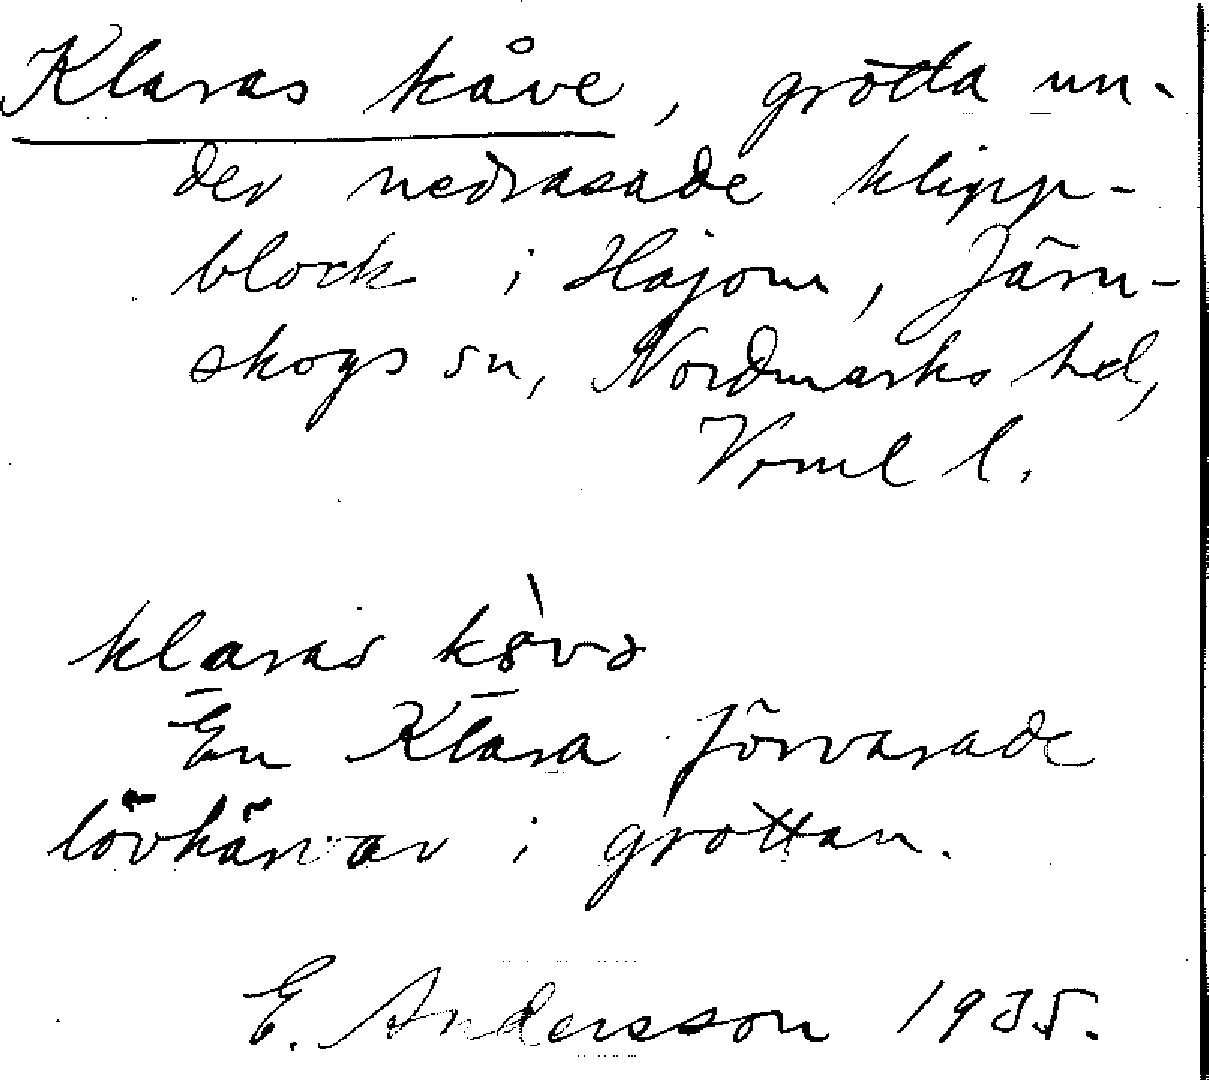 Klaras kåve, grotta un-
der nedrasade klipp-
block i Hajom, Järn-
skogs sn, Nordmarks hd,
Vrml l.
klaras kòvə
En Klara förvarade
lövkärvar i grottan.
E. Andersson 1935.